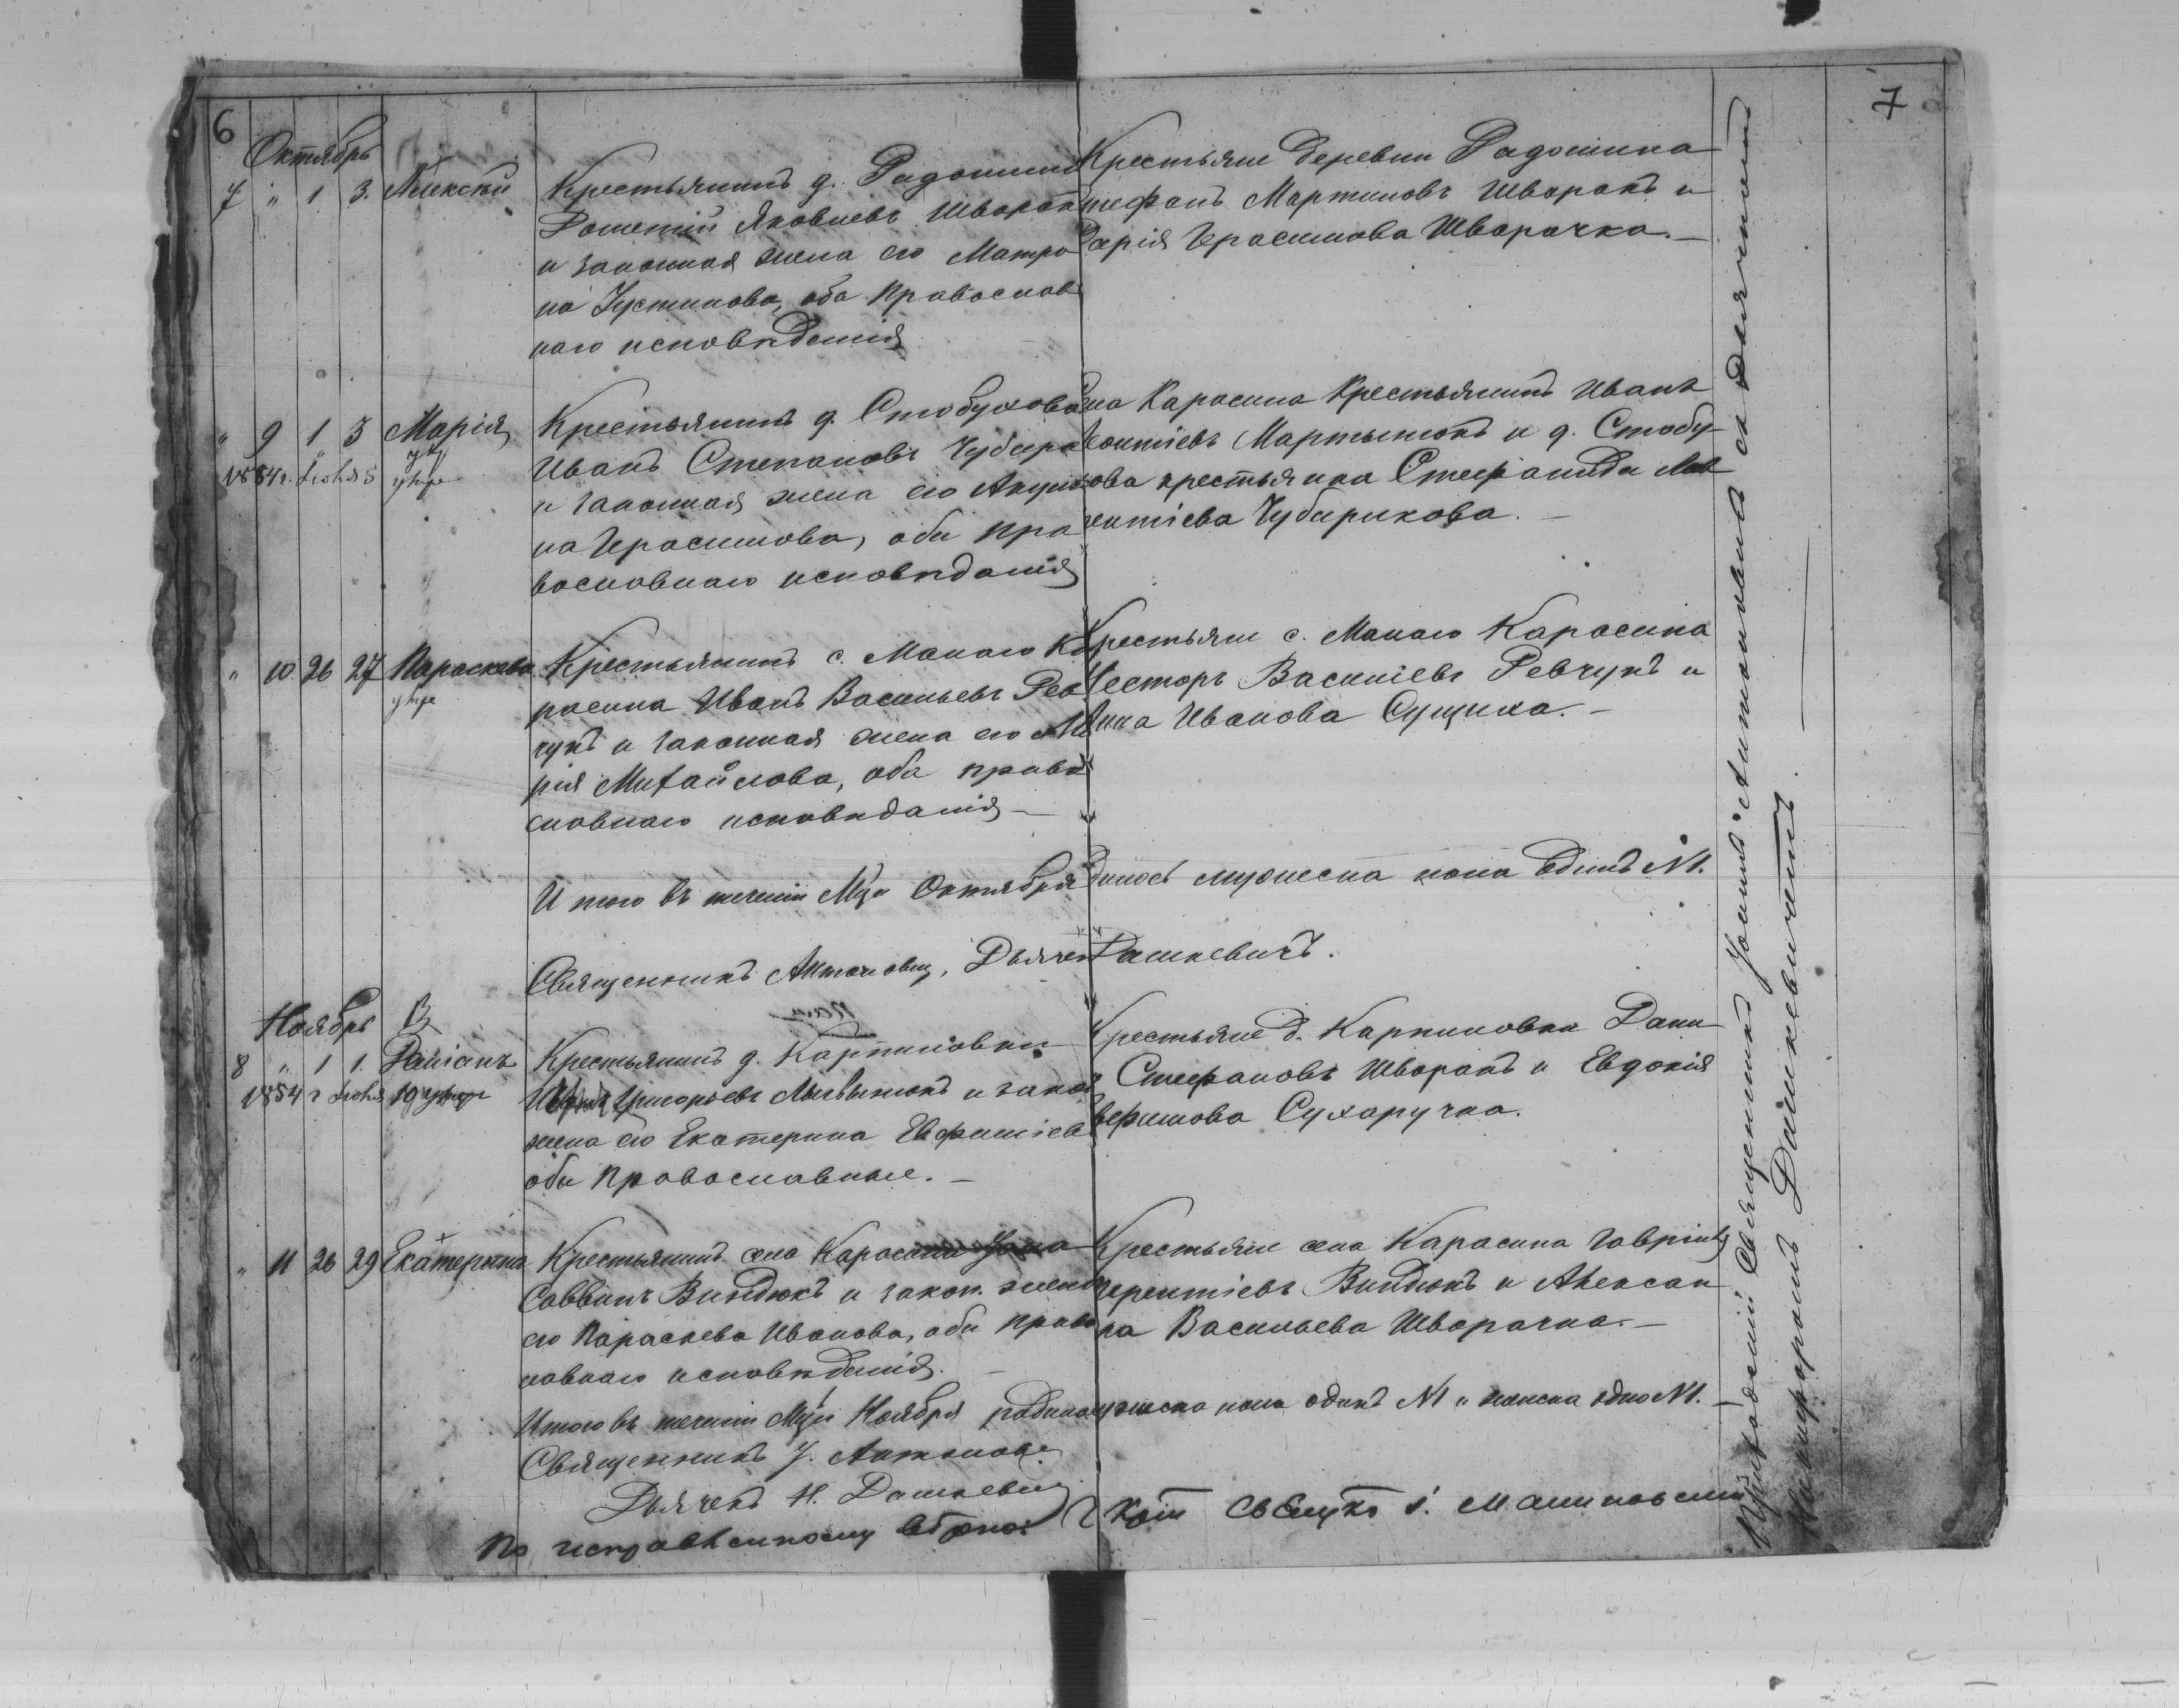 6
7
Октябрь
7 " 1 3. Алексѣй
Крестьянинъ д. Радошин
Яковлевъ Шворак
и законная жена его Матро
на Іустинова, оба православ
наго исповѣданія
Крестьяне деревни Радошина
тефанъ Мартиновъ Шворакъ и
Дарія Герасимова Шворачка.—
" 9 1 3 Марія
1854 г. Іюня 5 умре
Крестьянинъ д. Стобухова
Иванъ Степановъ Чубари
и законная жена его Акули
на Герасимова, оба пра
вославнаго исповѣданія
ла Карасина Крестьянинъ Иванъ
еонтіевъ Мартынюкъ и д. Стобу-
ова крестьянка Стефанида Лав
рентіева Чубарикова.—
" 10 26 27 Параскева
умре
Крестьянинъ с. Малаго Ка
расина Иванъ Васильевъ Рев
чукъ и законная жена его Ма
рія Михайлова, оба право
славнаго исповѣданія—
Крестьяне с. Малаго Карасина
Несторъ Василіевъ Ревчукъ и
Анна Иванова Сущика.—
И того въ теченіи Мца Октября
дилось мужеска пола одинъ №1.
Священникъ Антонович, Дьячек
Дашкевичъ.
Ноябрь
8 " 1 1. Даміанъ
1854 г Іюня 19 умре
Крестьянинъ д. Карпиловки
Григорьевъ Литвинюкъ и закон
жена его Екатерина Евфиміев
оба Православные.—
Крестьяне д. Карпиловки Дани
Стефановъ Шворакъ и Евдокія
Сухаручка.
" 11 26 29 Екатерина
Крестьянинъ села Карасина
Саввинъ Виндюкъ и закон. жена
его Параскева Иванова, оба право
лавнаго исповѣданія.—
Крестьяне села Карасина Гавріилъ
Терентіевъ Виндюкъ и Алексан
ра Васильева Шворачка.—
Итого въ теченіи Мца Ноября родилос
мужеска пола одинъ №1 и женска одно №1.
Священникъ І. Антонови
Дьячекъ Н. Дашкевич
По исправленному
Малиновский
Приходскій Священникъ Іоаннъ Антоновичъ съ дьячкомъ
Никифоромъ Дашкевичемъ.